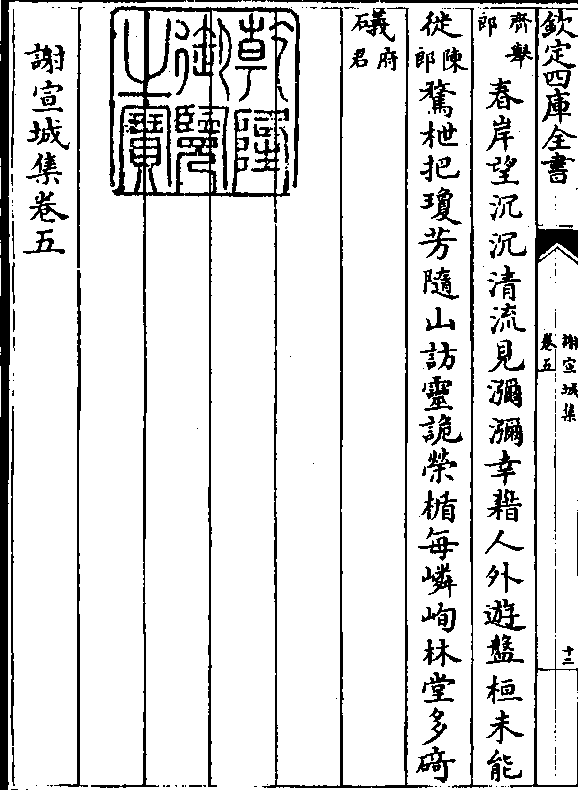 欽定四庫全書
謝宣城集
卷五
十三
齊舉郎春岸望沉沉清流見瀰瀰幸藉人外遊盤桓未能
從陳郎騖枻把瓊芳隨山訪靈詭榮楯每嶙峋林堂多碕
礒府君
乾隆御覽之寶
謝宣城集卷五